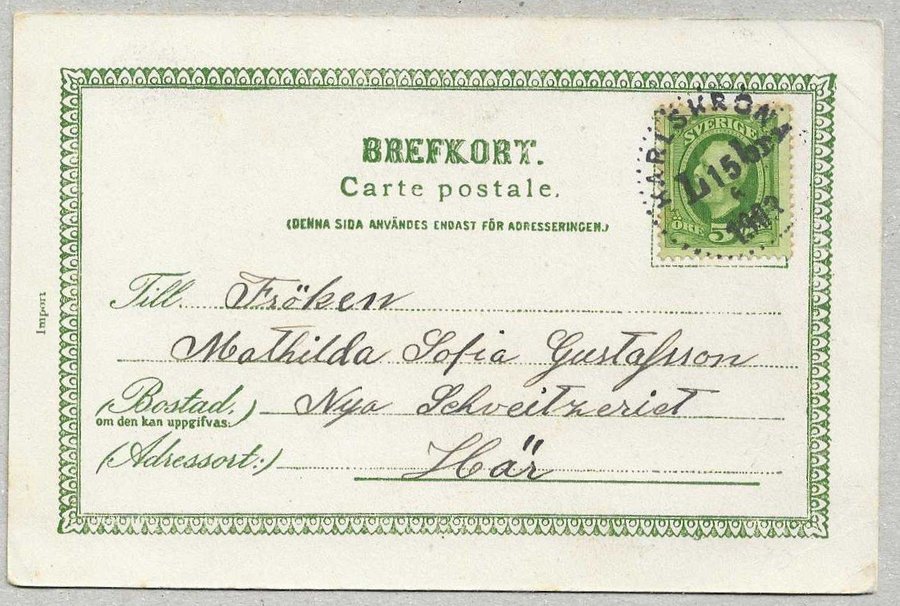 BREFKORT.
Carte postale.
(DENNA SIDA ANVÄNDES ENDAST FÖR ADRESSERINGEN.)
KARLSKRONA
SVERIGE
L 15
1903
ÖRE 5
Till Fröken
Mathilda Sofia Gustafsson
(Bostad.) Nya Schveitzeriet
om den kan uppgifvas.
(Adressort:) Här
Import